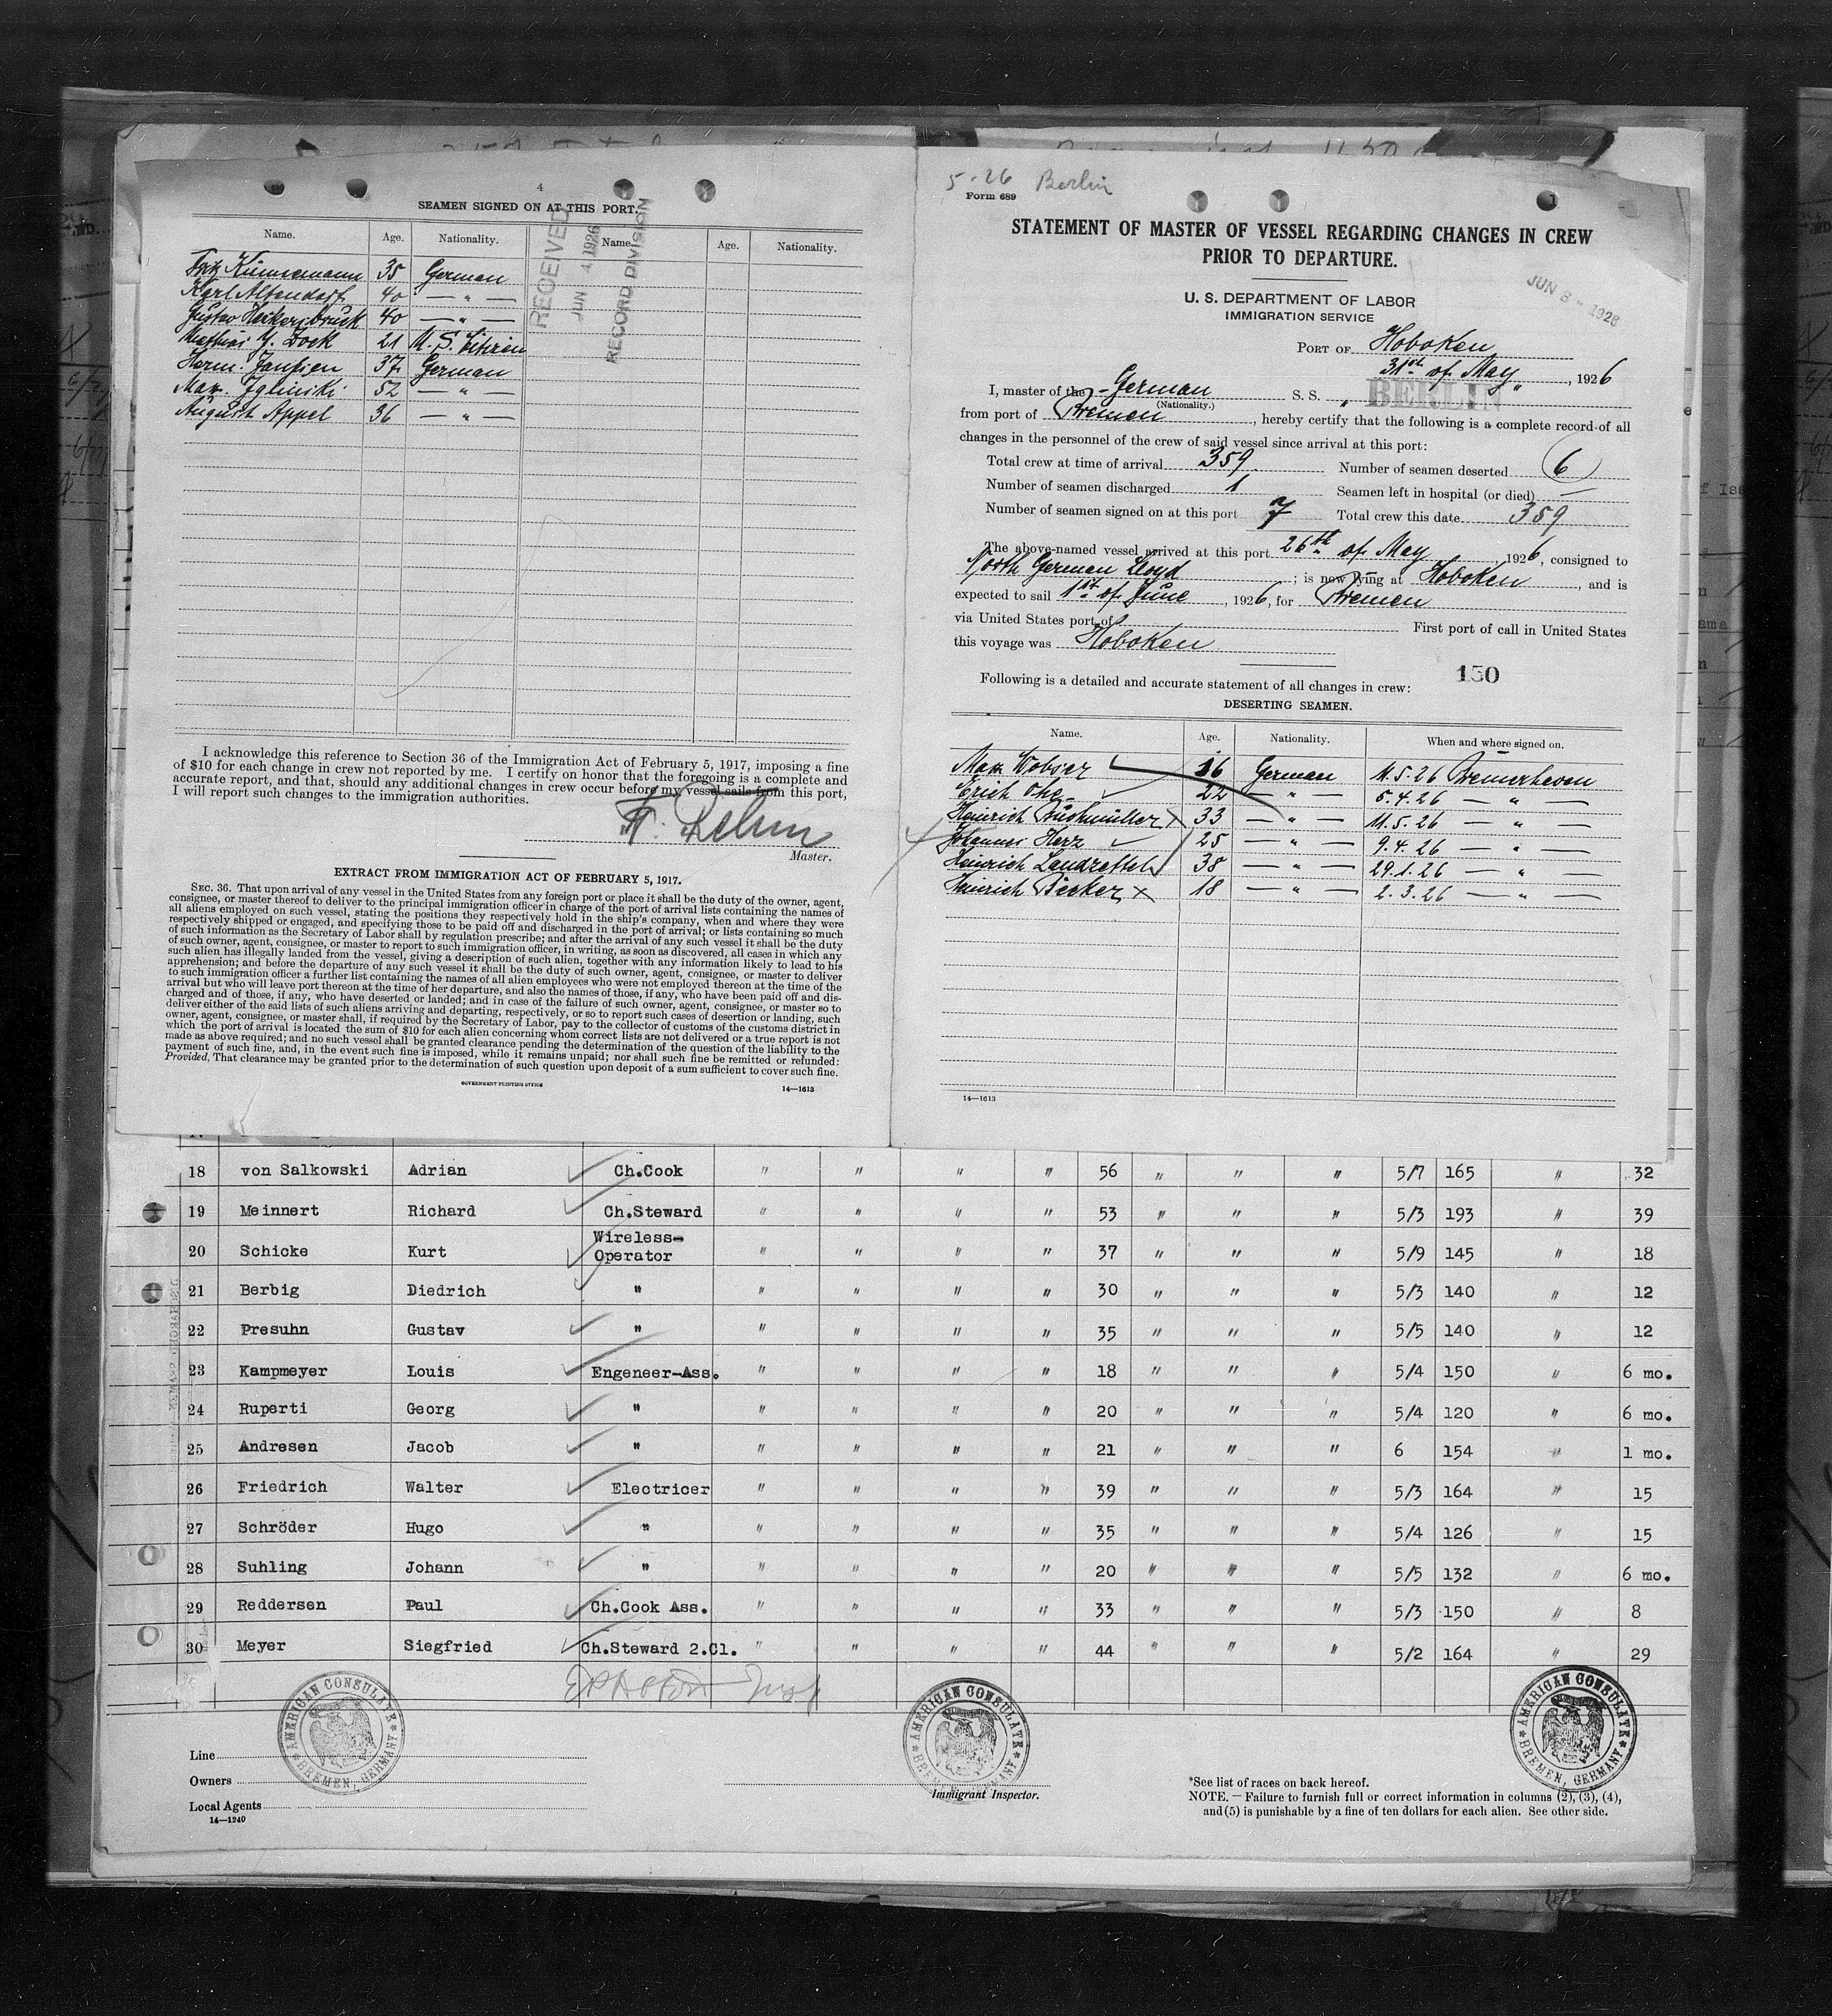 4
SEAMEN SIGNED ON AT THIS PORT.
Name. Age. Nationality. Name. Age. Nationality.
RECEIVED
JUN 4 1926
RECORD DIVISION
Fritz Künnemann 35 German
Karl Altendorf 40 — " —
Gustav 40 — " —
Mathias Y. Zock 21 U. S. Citizen
Herm. Janssen 37 German
Max 52 — " —
August Appel 36 — " —
I acknowledge this reference to Section 36 of the Immigration Act of February 5, 1917, imposing a fine
of $10 for each change in crew not reported by me. I certify on honor that the foregoing is a complete and
accurate report, and that, should any additional changes in crew occur before my vessel sails from this port,
I will report such changes to the immigration authorities.
Master.
EXTRACT FROM IMMIGRATION ACT OF FEBRUARY 5, 1917.
SEC. 36. That upon arrival of any vessel in the United States from any foreign port or place it shall be the duty of the owner, agent,
consignee, or master thereof to deliver to the principal immigration officer in charge of the port of arrival lists containing the names of
all aliens employed on such vessel, stating the positions they respectively hold in the ship's company, when and where they were
respectively shipped or engaged, and specifying those to be paid off and discharged in the port of arrival; or lists containing so much
of such information as the Secretary of Labor shall by regulation prescribe; and after the arrival of any such vessel it shall be the duty
of such owner, agent, consignee, or master to report to such immigration officer, in writing, as soon as discovered, all cases in which any
such alien has illegally landed from the vessel, giving a description of such alien, together with any information likely to lead to his
apprehension; and before the departure of any such vessel it shall be the duty of such owner, agent, consignee, or master to deliver
to such immigration officer a further list containing the names of all alien employees who were not employed thereon at the time of the
arrival but who will leave port thereon at the time of her departure, and also the names of those, if any, who have been paid off and dis-
charged and of those, if any, who have deserted or landed; and in case of the failure of such owner, agent, consignee, or master so to
deliver either of the said lists of such aliens arriving and departing, respectively, or so to report such cases of desertion or landing, such
owner, agent, consignee, or master shall, if required by the Secretary of Labor, pay to the collector of customs of the customs district in
which the port of arrival is located the sum of $10 for each alien concerning whom correct lists are not delivered or a true report is not
made as above required; and no such vessel shall be granted clearance pending the determination of the question of the liability to the
payment of such fine, and, in the event such fine is imposed, while it remains unpaid; nor shall such fine be remitted or refunded:
Provided, That clearance may be granted prior to the determination of such question upon deposit of a sum sufficient to cover such fine.
GOVERNMENT PRINTING OFFICE 14—1613
5-26 Berlin
Form 689
1
STATEMENT OF MASTER OF VESSEL REGARDING CHANGES IN CREW
PRIOR TO DEPARTURE.
JUN 3 - 1926
U. S. DEPARTMENT OF LABOR
IMMIGRATION SERVICE
PORT OF Hoboken
31st of May, 1926
I, master of the German S. S. „BERLIN"
(Nationality.)
from port of Bremen, hereby certify that the following is a complete record of all
changes in the personnel of the crew of said vessel since arrival at this port:
Total crew at time of arrival 359. Number of seamen deserted 6
Number of seamen discharged 1 Seamen left in hospital (or died) —
Number of seamen signed on at this port 7 Total crew this date 359
The above-named vessel arrived at this port 26th of May, 1926, consigned to
North German Lloyd; is now lying at Hoboken, and is
expected to sail 1st of June, 1926, for Bremen
via United States port of First port of call in United States
this voyage was Hoboken
150
Following is a detailed and accurate statement of all changes in crew:
DESERTING SEAMEN.
Name. Age. Nationality. When and where signed on.
Max Wobser 16 German 11.5.26 Bremerhaven
Erich 22 — " — 5.4.26 — " —
Heinrich Buckmüller 33 — " — 11.5.26 — " —
Johannes Herz 25 — " — 9.4.26 — " —
Heinrich 38 — " — 29.1.26 — " —
Heinrich Becker 18 — " — 2.3.26 — " —
14—1613
18 von Salkowski Adrian Ch.Cook " " " " 56 " " " 5/7 165 " 32
19 Meinnert Richard Ch.Steward " " " " 53 " " " 5/3 193 " 39
20 Schicke Kurt Wireless-Operator " " " " 37 " " " 5/9 145 " 18
21 Berbig Diedrich " " " " " 30 " " " 5/3 140 " 12
22 Presuhn Gustav " " " " " 35 " " " 5/5 140 " 12
23 Kampmeyer Louis Engeneer-Ass. " " " " 18 " " " 5/4 150 " 6 mo.
24 Ruperti Georg " " " " " 20 " " " 5/4 120 " 6 mo.
25 Andresen Jacob " " " " " 21 " " " 6 154 " 1 mo.
26 Friedrich Walter Electricer " " " " 39 " " " 5/3 164 " 15
27 Schröder Hugo " " " " " 35 " " " 5/4 126 " 15
28 Suhling Johann " " " " " 20 " " " 5/5 132 " 6 mo.
29 Reddersen Paul Ch.Cook Ass. " " " " 33 " " " 5/3 150 " 8
30 Meyer Siegfried Ch.Steward 2.Cl. " " " " 44 " " " 5/2 164 " 29
AMERICAN CONSULATE BREMEN, GERMANY
AMERICAN CONSULATE BREMEN, GERMANY
AMERICAN CONSULATE BREMEN, GERMANY
Line
Owners
Local Agents
14—1240
Immigrant Inspector.
*See list of races on back hereof.
NOTE. — Failure to furnish full or correct information in columns (2), (3), (4),
and (5) is punishable by a fine of ten dollars for each alien. See other side.